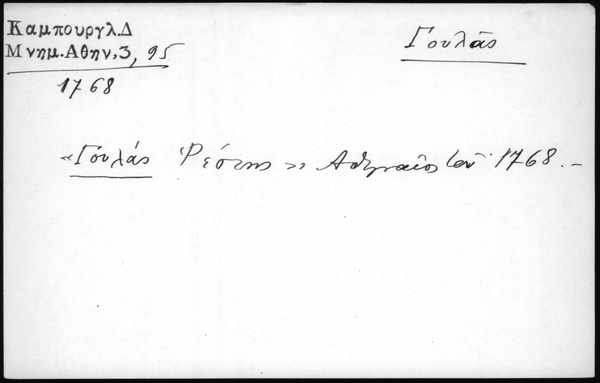 Καμπουργλ.Δ
Μνημ.Αθην,3, 95
1768
Γουλάς
«Γουλάς Ρέστης» Αθηναίος τού 1768.—